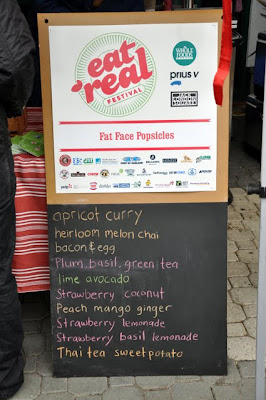 eat
real
FESTIVAL
WHOLE
FOODS
MARKET
PRIUS v
JACK
LONDON
SQUARE
Fat Face Popsicles
apricot curry
heirloom melon chai
bacon & egg
Plum, basil, green tea
lime avocado
Strawberry coconut
Peach mango ginger
Strawberry lemonade
Strawberry basil lemonade
Thai tea sweet potato